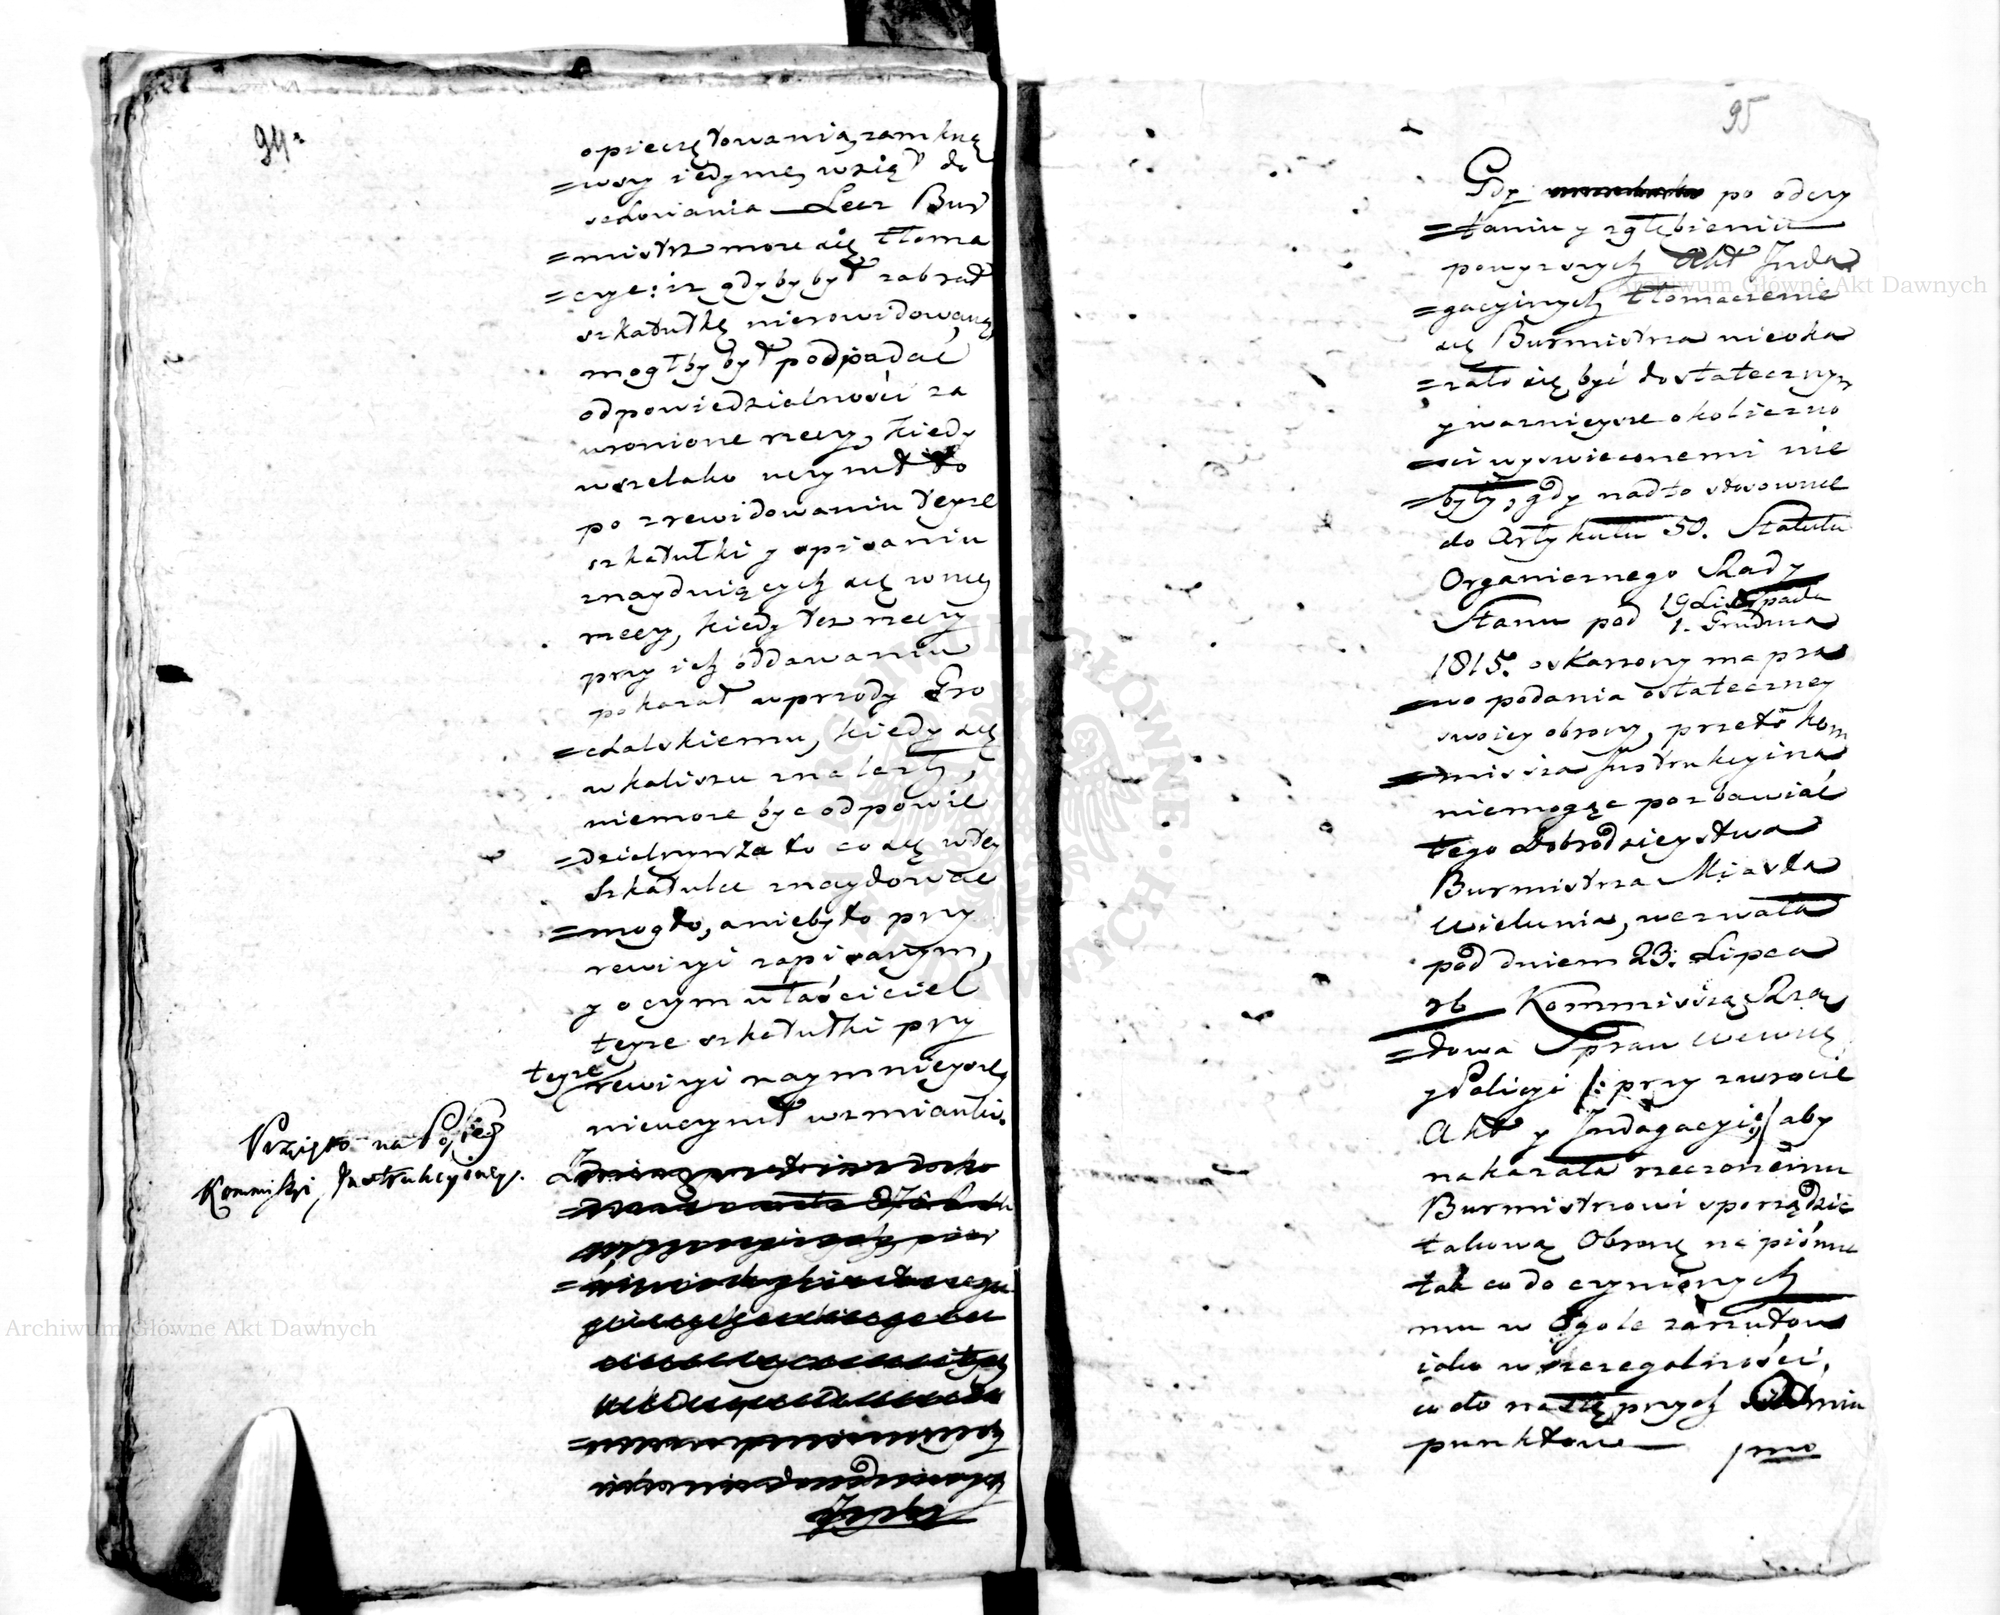 94.
opieczętowania, zamknę
=wszy iedynie, wziął do
schowania — Lecz Bur
=mistrz może się tłoma
=czyć: iż gdyby był zabrał
szkatułkę niezrewidowaną,
mogłby był podpadać
odpowiedzialności za
uronione rzeczy, kiedy
wszelako uczynił to
po zrewidowaniu teyże
szkatułki y spisaniu
znayduiących się w niey
rzeczy, kiedy też rzeczy
przy ich oddawaniu
pokazał wprzódy Gro
=chalskiemu, kiedy się
w kaliszu znalazły,
niemoże być odpowie
=dzialnym za to co się w tey
Szkatulce znaydować
=mogło, a nie było przy
rewizyi zapisanym,
y o czym właściciel
teyże szkatułki przy
teyże rewizyi naymnieyszey
nieuczynił wzmianki.
Przyięto na Posiedz
Kommissyi Instrukcyiney.
95
Gdy po odczy
=taniu y zgłębieniu
powyższych Akt Inda
=gacyinych tłomaczenie
się Burmistrza nieoka
=zało się być dostatecznym
y ważnieysze okoliczno
=ści wyswieconemi nie
=były, gdy nadto stosownie
do Artykułu 50. Statutu
Organicznego Rady
Stanu pod 19 Listopada
1. Grudnia
1815. oskarżony ma pra
=wo podania ostateczney
swoiey obrony, przeto kom
=missia Instrukcyina
niemogąc pozbawiać
tego Dobrodzieystwa
Burmistrza Miasta
Wielunia, wezwała
pod dniem 23. Lipca
rb Kommissią Rzą
=dowa Spraw Wewnę
y Policyi /: przy zwrocie
Akt y Indagacyi :/ aby
nakazała rzeczonemu
Burmistrzowi sporządzić
takową Obronę na piśmie
tak co do czynionych
mu w Ogóle zarzutów
iako w szczególności,
co do następnych siedmiu
punktów —
1mo